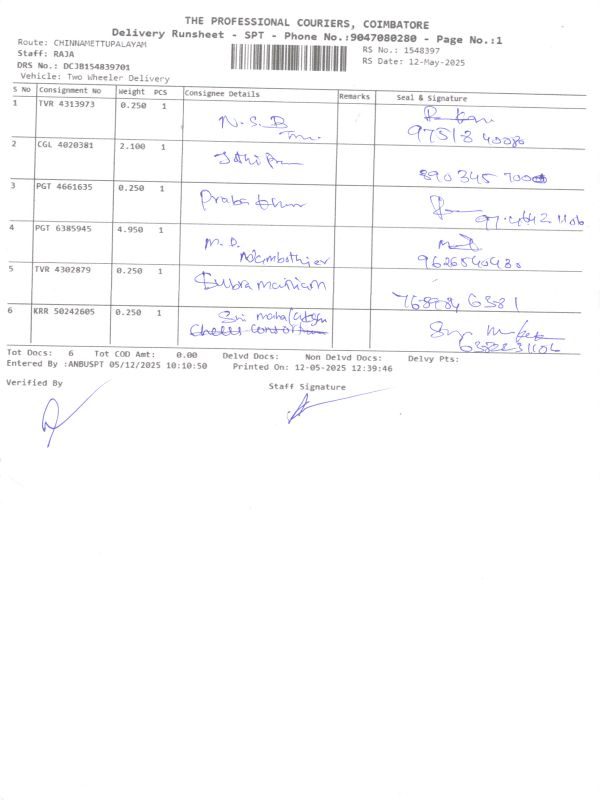 THE PROFESSIONAL COURIERS, COIMBATORE
Delivery Runsheet - SPT - Phone No.:9047080280 - Page No.:1
Route: CHINNAMETTUPALAYAM
Staff: RAJA
RS No.: 1548397
DRS No.: DCJB154839701
RS Date: 12-May-2025
Vehicle: Two Wheeler Delivery
S No Consignment No Weight PCS Consignee Details Remarks Seal & Signature
1 TVR 4313973 0.250 1 N.S.B
97518 40080
2 CGL 4020381 2.100 1
890345 7000
3 PGT 4661635 0.250 1
4 PGT 6385945 4.950 1 M.D.
9626540430
5 TVR 4302879 0.250 1 Subramaniam
6 KRR 50242605 0.250 1 Sri
Tot Docs: 6 Tot COD Amt: 0.00 Delvd Docs: Non Delvd Docs: Delvy Pts:
Entered By :ANBUSPT 05/12/2025 10:10:50 Printed On: 12-05-2025 12:39:46
Verified By Staff Signature